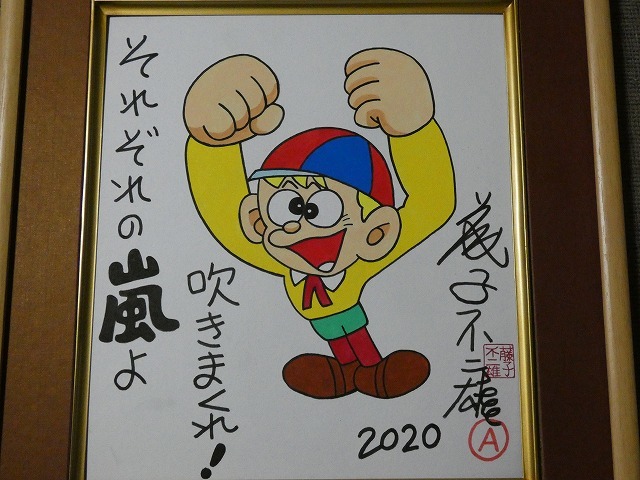 それぞれの嵐よ
吹きまくれ!
藤子不二雄
藤子
不二雄
Ⓐ
2020